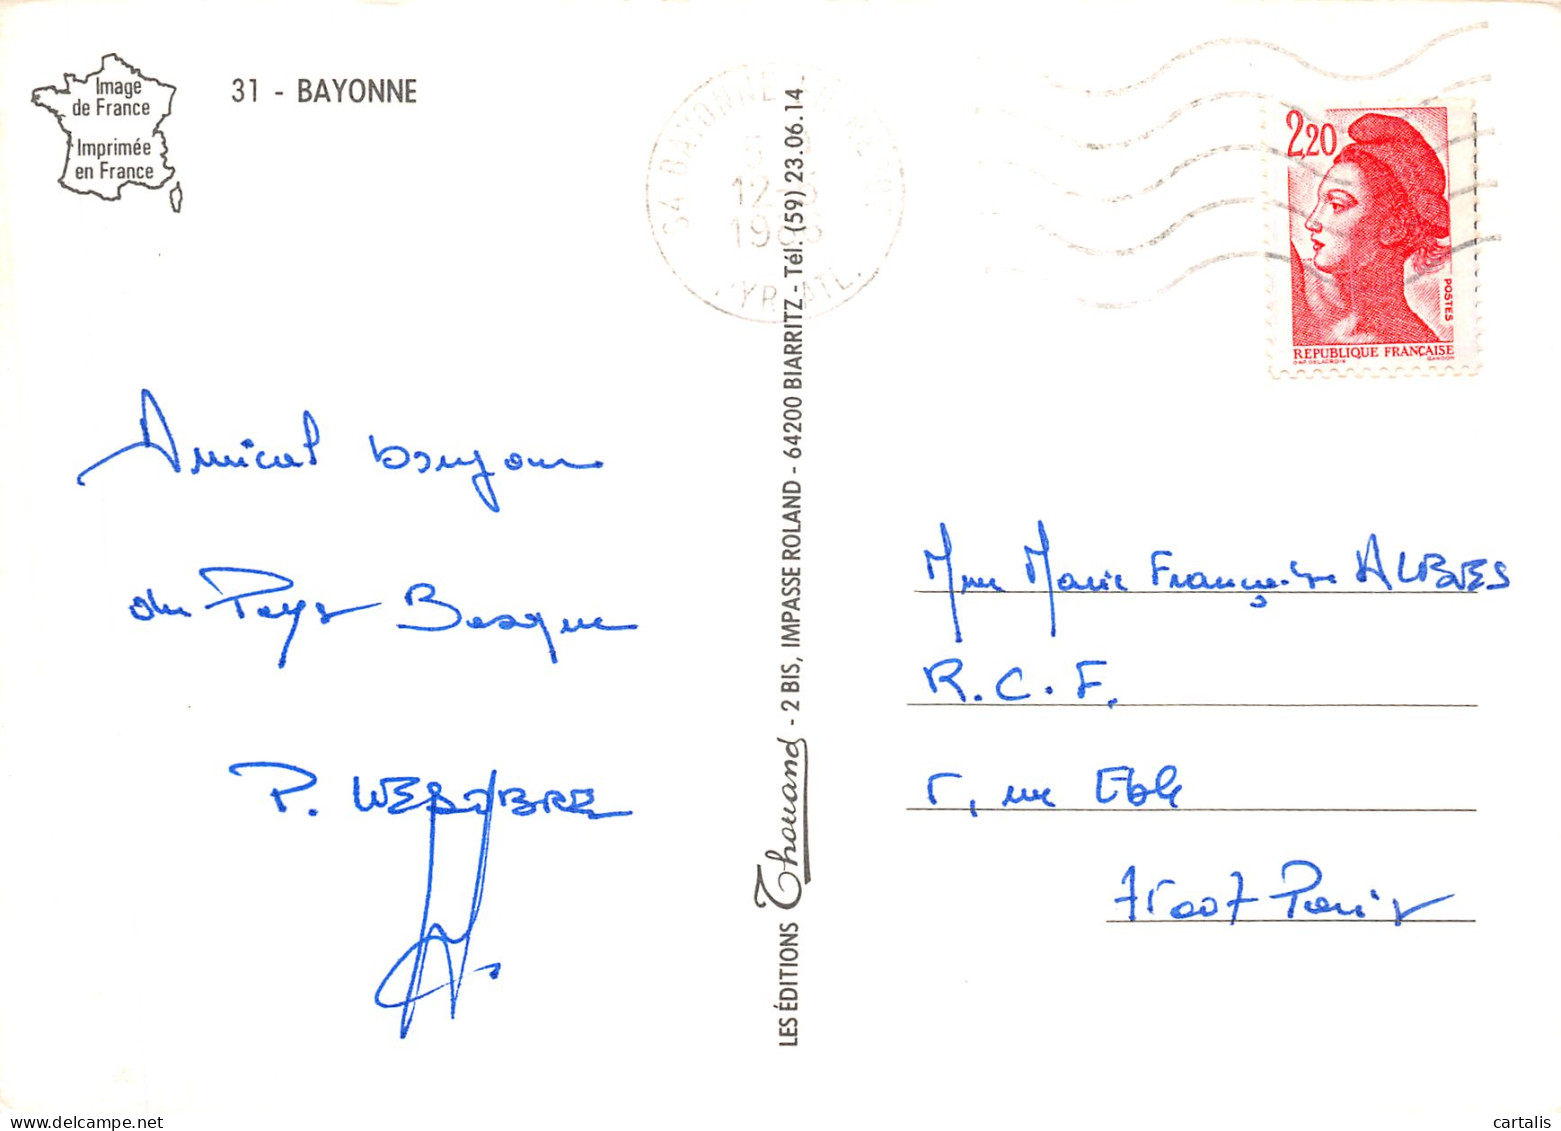 Image
de France
Imprimée
en France
31 - BAYONNE
64 BAYONNE
12
PYR ATL.
2,20
POSTES
REPUBLIQUE FRANÇAISE
D'AP. DELACROIX GANDON
Amical bonjour
du Pays Basque
P.
LES ÉDITIONS Thouand - 2 BIS, IMPASSE ROLAND - 64200 BIARRITZ - Tél. (59) 23.06.14
Mme Marie Françoise
R.C.F.
5, rue Eblé
75007 Paris
delcampe.net
cartalis